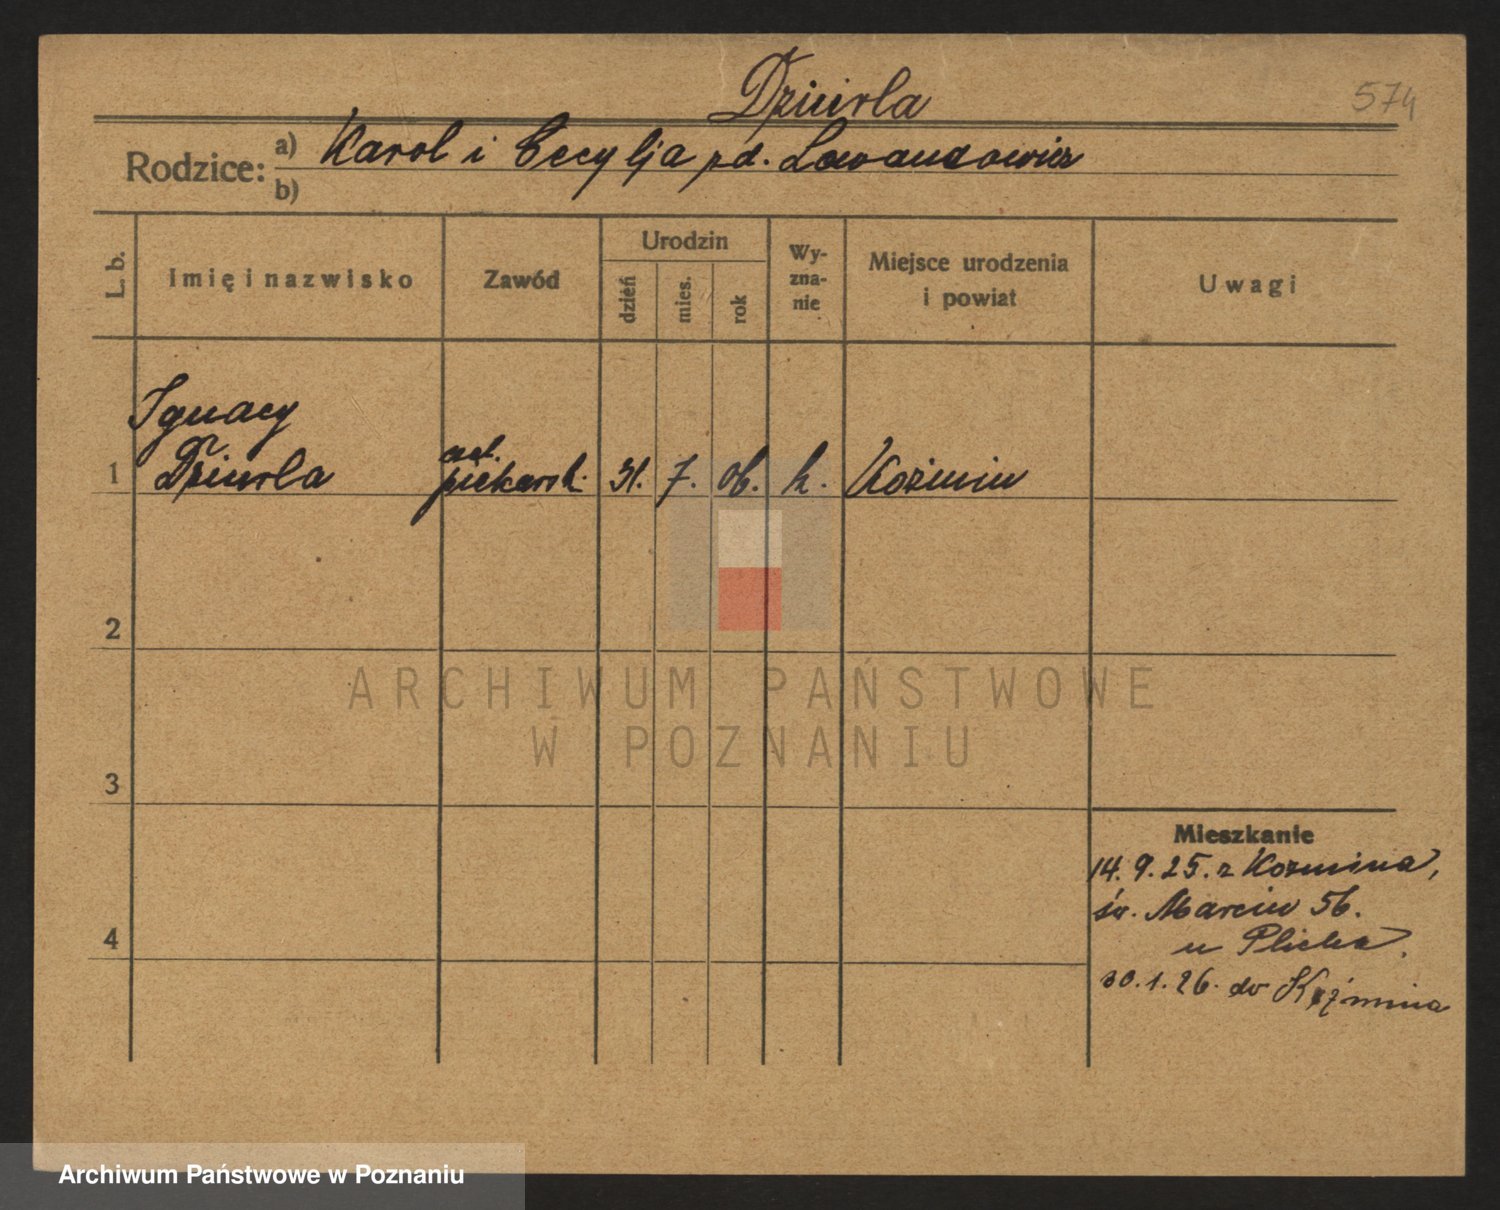 Dziurla
574
Rodzice:
a) Karol i Cecylja pd. Lewandowicz
b)
L. b.
Imię i nazwisko
Zawód
Urodzin
dzień
mies.
rok
Wy-
zna-
nie
Miejsce urodzenia
i powiat
Uwagi
Ignacy
czel.
1 Dziurla piekarsk. 31. 7. 06. k. Koźmin
2
3
4
Mieszkanie
14. 9. 25. z Kozmina,
św. Marcin 56.
u Plicha.
30. 1. 26. do Koźmina
ARCHIWUM PAŃSTWOWE
W POZNANIU
Archiwum Państwowe w Poznaniu